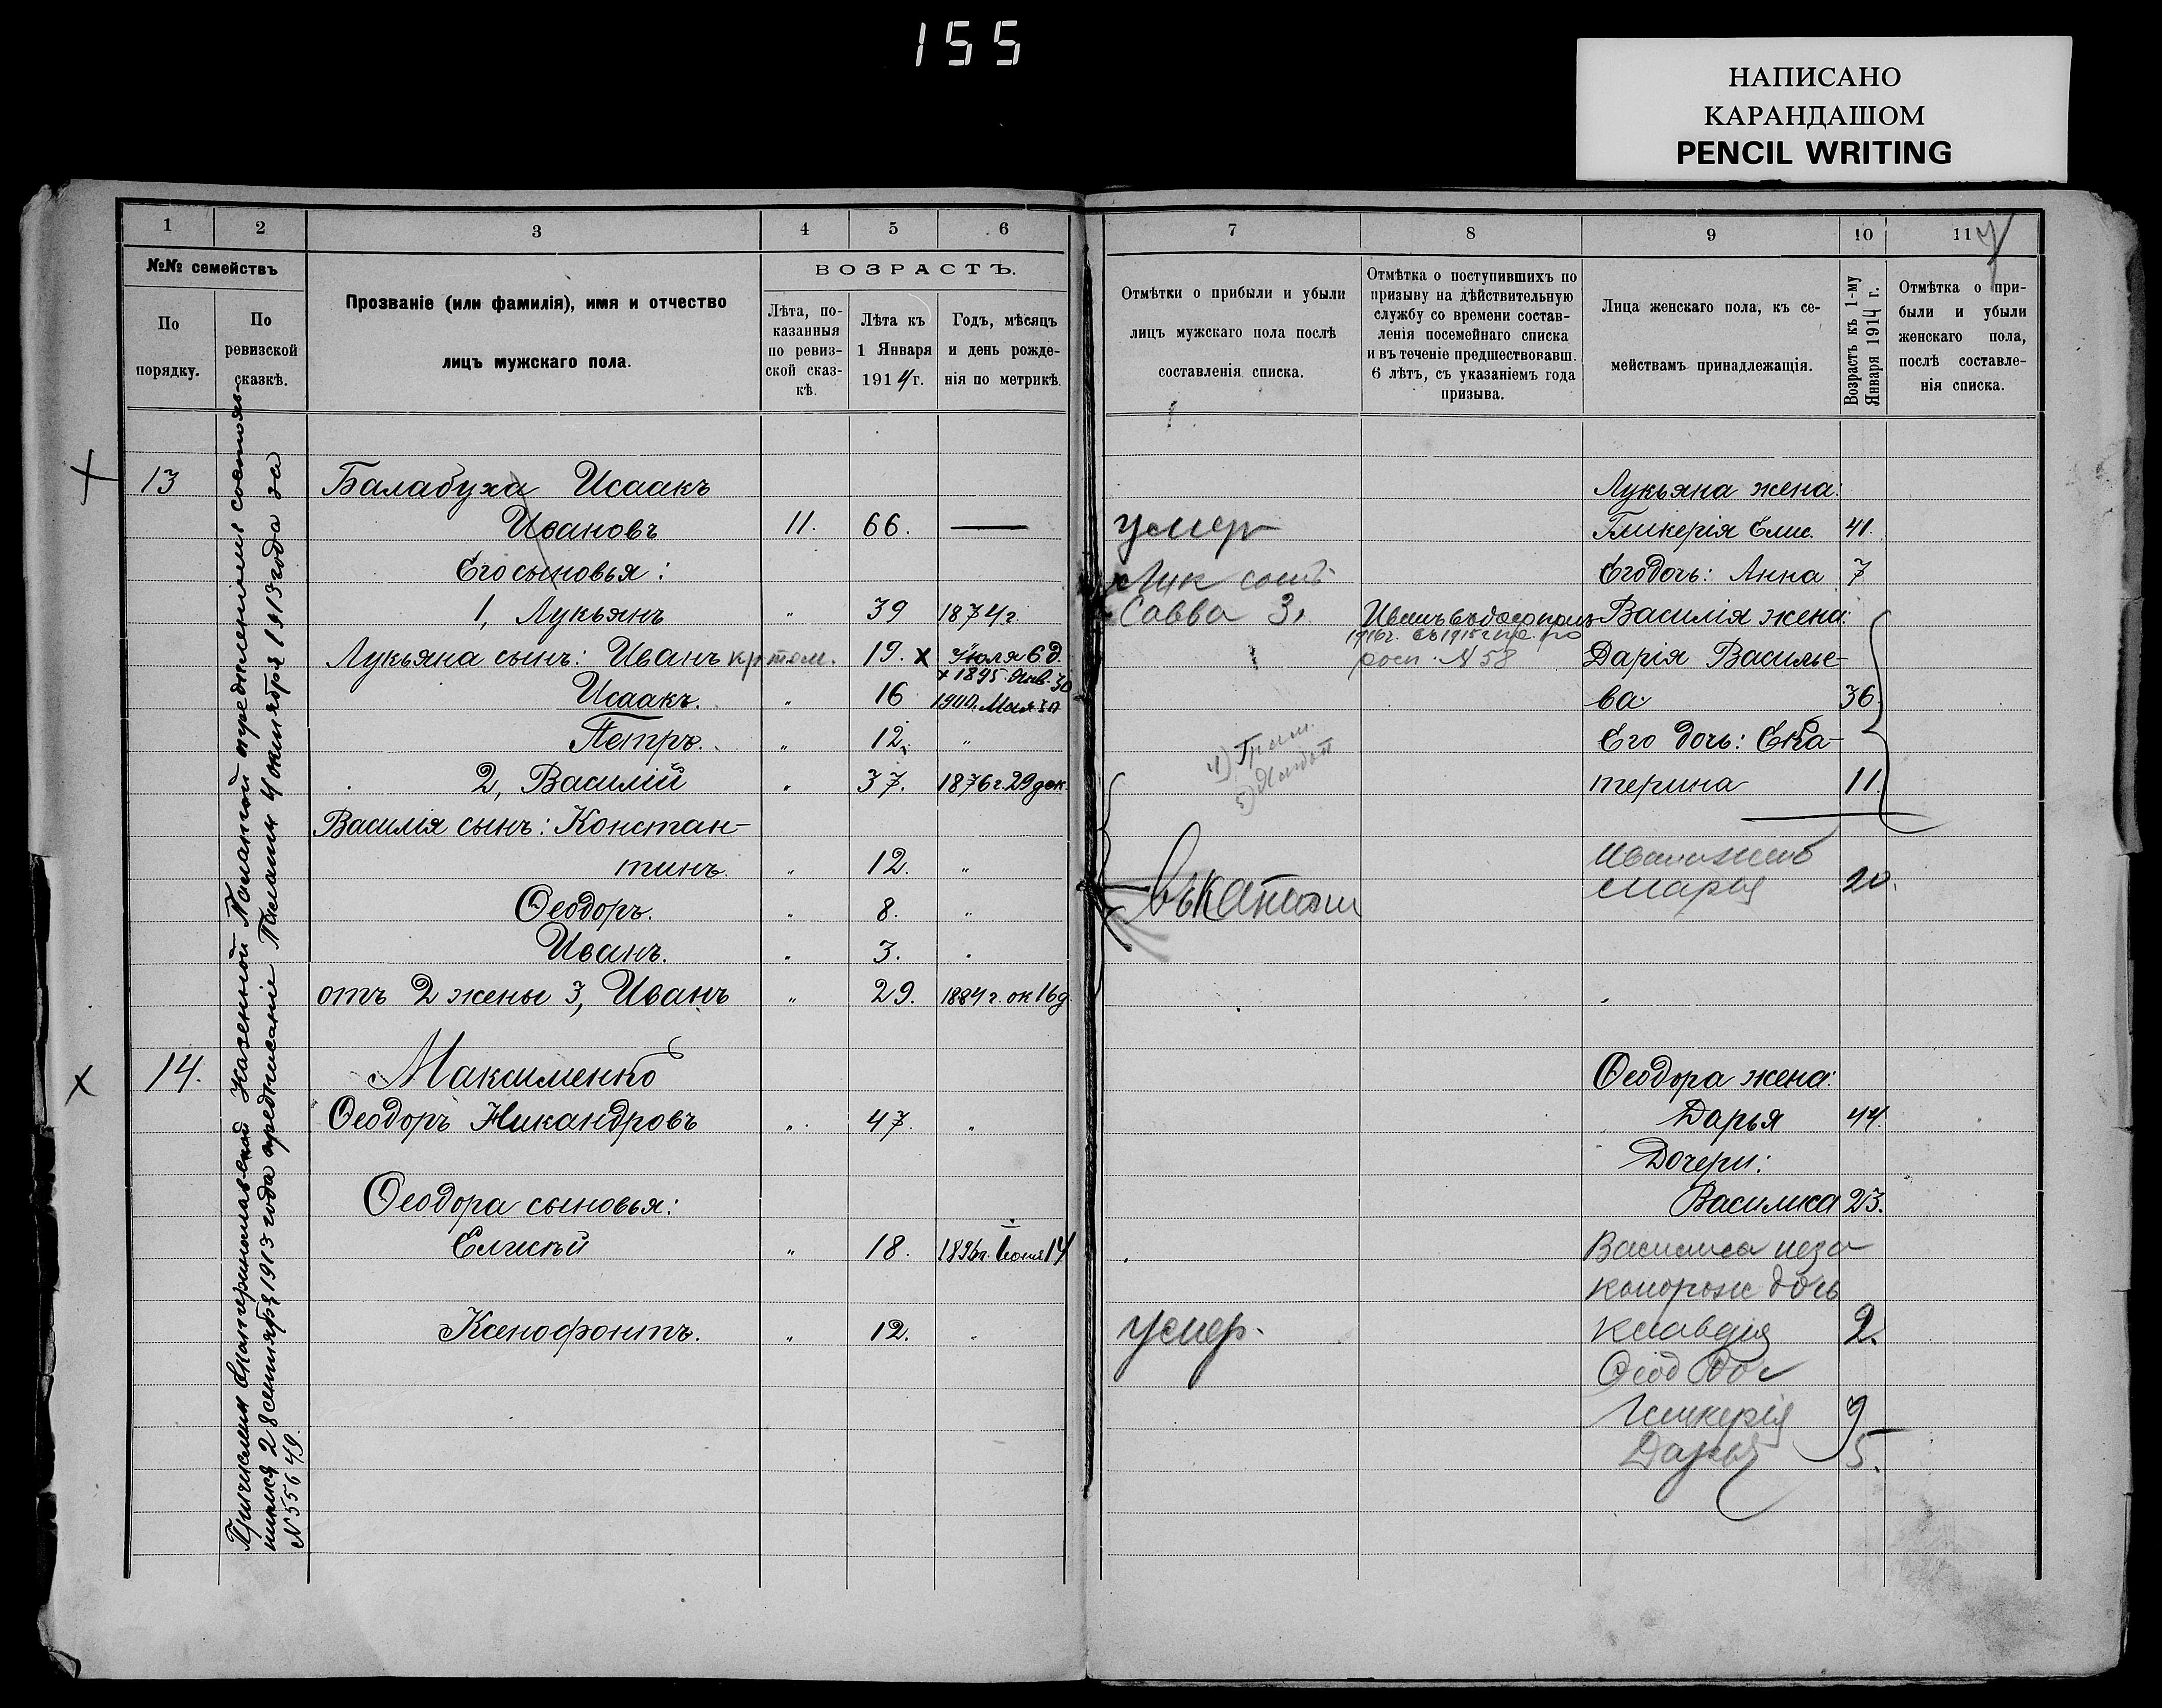 155
НАПИСАНО
КАРАНДАШОМ
PENCIL WRITING
1 2 3 4 5 6
№№ семействъ
По порядку.
По ревизской сказкѣ.
Прозваніе (или фамилія), имя и отчество
лицъ мужскаго пола.
ВОЗРАСТЪ.
Лѣта, по-
казанныя
по ревиз-
ской сказ-
кѣ.
Лѣта къ
1 Января
1914 г.
Годъ, мѣсяцъ
и день рожде-
нія по метрикѣ.
Причислены Екатеринославской Казенной Палатой
28 сентября 1913 года предписаніе Палаты 4 октября 1913 года за
№ 55649.
13 Балабуха Исаакъ
Ивановъ 11. 66. —
Его сыновья:
1, Лукьянъ " 39 1874 г.
Лукьяна сынъ: Иванъ 19. х Іюля 6 д.
+ 1895. Янв. 30
Исаакъ. " 16 1900. Мая
Петръ. " 12. "
2, Василій " 37. 1876 г. 29 дек.
Василія сынъ: Констан-
тинъ. " 12. "
Ѳеодоръ. " 8. "
Иванъ. " 3. "
отъ 2 жены 3, Иванъ " 29. 1884 г. ок 16 д.
14. Максименко
Ѳеодоръ Никандровъ " 47 "
Ѳеодора сыновья:
Елисѣй " 18. Іюня 14
Ксенофонтъ. " 12. "
7 8 9 10 11
7
Отмѣтки о прибыли и убыли
лицъ мужскаго пола послѣ
составленія списка.
Отмѣтка о поступившихъ по
призыву на дѣйствительную
службу со времени состав-
ленія посемейнаго списка
и въ теченіе предшествовавш.
6 лѣтъ, съ указаніемъ года
призыва.
Лица женскаго пола, къ се-
мействамъ принадлежащія.
Возрастъ къ 1-му
Января 1914 г.
Отмѣтка о при-
были и убыли
женскаго пола,
послѣ составле-
нія списка.
Лукьяна жена:
умер Гликерія Елис. 41.
Лук Его дочь: Анна 7
Савва 3. Василія жена:
№ 58 Дарія Василье-
ва 36.
Его дочь: Ека-
терина 11.
Марья 20.
Ѳеодора жена:
Дарья 44.
Дочери:
Василиса 23.
Василиса неза
конорож дочь
умер. Клавдія 2.
Ѳеод доч
Гликерія 9
Дарья 5.